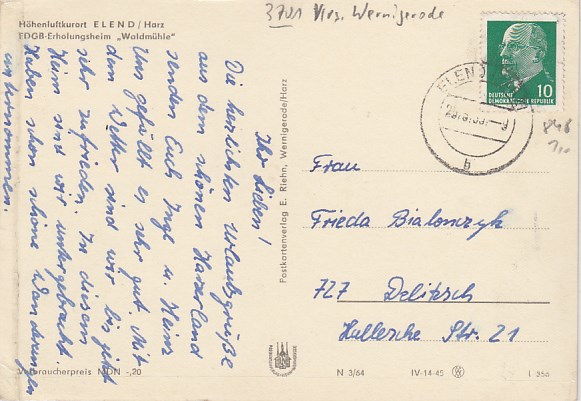 3701 Krs. Wernigerode
Höhenluftkurort ELEND / Harz
FDGB-Erholungsheim „Waldmühle"
Ihr Lieben!
Die herzlichsten Urlaubsgrüße
aus dem schönen Harzerland
senden Euch Inge u. Heinz
Uns gefällt es sehr gut. Mit
dem Wetter sind wir bis jetzt
sehr zufrieden. In diesem
Heim sind wir untergebracht.
Haben schon schöne Wanderungen
unternommen.
Verbraucherpreis MDN -,20
Postkartenverlag E. Riehn, Wernigerode/Harz
ELEND
DEUTSCHE
DEMOKRATISCHE REPUBLIK
10
Frau
Frieda Bialonczyk
727 Delitzsch
Hallesche Str. 21
N 3/64
IV-14-45
L 356